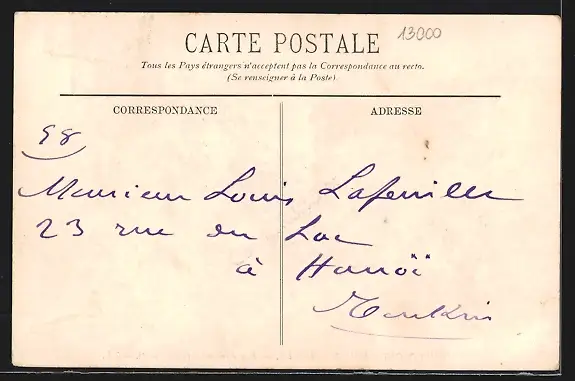 CARTE POSTALE
13000
Tous les Pays étrangers n'acceptent pas la Correspondance au recto.
(Se renseigner à la Poste)
CORRESPONDANCE
ADRESSE
58
Monsieur Louis Lafeuille
23 rue du Lac
à Hanoï
Tonkin